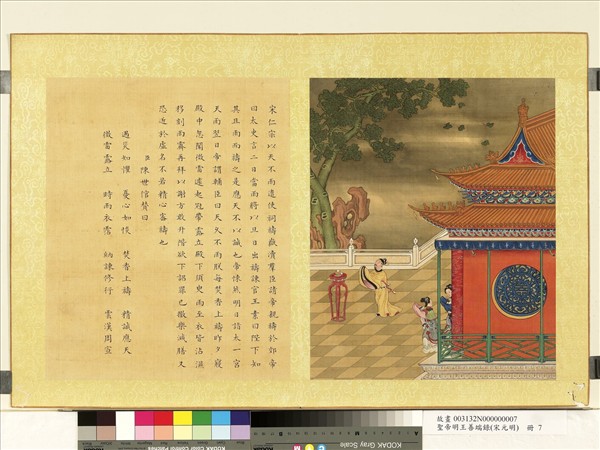 宋仁宗以天不雨遣使祠禱嶽瀆羣臣請帝親禱於郊帝
曰太史言二日當雨將以旦日出禱諫官王素曰陛下知
其且雨而禱之是應天不以誠也帝悚然明日詣太一宮
天雨翌日帝謂輔臣曰天久不雨朕每焚香上禱昨夕寢
殿中忽聞微雷遽起冠帶露立殿下須臾雨至衣皆沾濕
移刻雨霽再拜以謝方敢升階欲下詔罪己徹樂減膳又
恐近於虛名不若精心密禱也
臣陳世倌贊曰
遇災如懼 憂心如惔 焚香上禱 精誠應天
微雷露立 時雨衣霑 納諫修行 雲漢周宣
故畫 003132N000000007
聖帝明王善端錄(宋元明) 冊 7